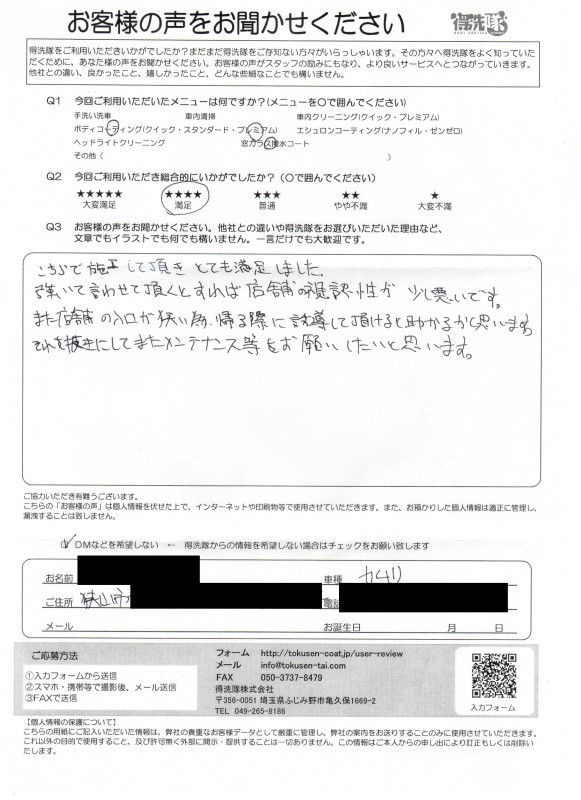 お客様の声をお聞かせください
得洗隊
得洗隊をご利用いただきいかがでしたか？まだまだ得洗隊をご存知ない方々がいらっしゃいます。その方々へ得洗隊をよく知っていた
だくために、あなた様の声をお聞かせください。お客様の声がスタッフの励みにもなり、より良いサービスへとつながっていきます。
他社との違い、良かったこと、嬉しかったこと、どんな些細なことでも構いません。
Q1 今回ご利用いただいたメニューは何ですか？(メニューを〇で囲んでください)
手洗い洗車 車内清掃 車内クリーニング(クイック・プレミアム)
ボディコーティング(クイック・スタンダード・プレミアム) エシュロンコーティング(ナノフィル・ゼンゼロ)
ヘッドライトクリーニング 窓ガラス撥水コート
その他（ ）
Q2 今回ご利用いただき総合的にいかがでしたか？（〇で囲んでください）
★★★★★ ★★★★ ★★★ ★★ ★
大変満足 満足 普通 やや不満 大変不満
Q3 お客様の声をお聞かせください。他社との違いや得洗隊をお選びいただいた理由など、
文章でもイラストでも何でも構いません。一言だけでも大歓迎です。
こちらで施工して頂きとても満足しました。
強いて言わせて頂くとすれば店舗の視認性が少し悪いです。
また店舗の入口が狭い為、帰る際に誘導して頂けると助かるかと思います。
それを抜きにしてまたメンテナンス等をお願いしたいと思います。
ご協力いただき有難うございます。
こちらの「お客様の声」は個人情報を伏せた上で、インターネットや印刷物等で使用させていただきます。また、お預かりした個人情報は適正に管理し、
漏洩することは致しません。
DMなどを希望しない ← 得洗隊からの情報を希望しない場合はチェックをお願い致します
お名前 車種 カムリ
ご住所 狭山市 電話
メール お誕生日 月 日
ご応募方法
①入力フォームから送信
②スマホ・携帯等で撮影後、メール送信
③FAXで送信
フォーム http://tokusen-coat.jp/user-review
メール info@tokusen-tai.com
FAX 050-3737-8479
得洗隊株式会社
〒356-0051 埼玉県ふじみ野市亀久保1669-2
TEL 049-265-8186
入力フォーム
【個人情報の保護について】
こちらの用紙にご記入いただいた情報は、弊社の貴重なお客様データとして厳重に管理し、弊社の案内をお送りすることのみに使用させていただきます。
これ以外の目的で使用すること、及び許可無く外部に開示・提供することは一切ありません。この情報はご本人からの申し出により訂正もしくは削除い
たします。